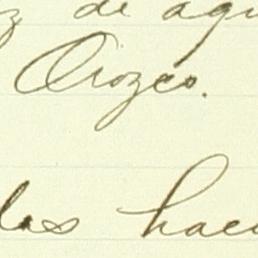 z de agu
Orozco.
las hace